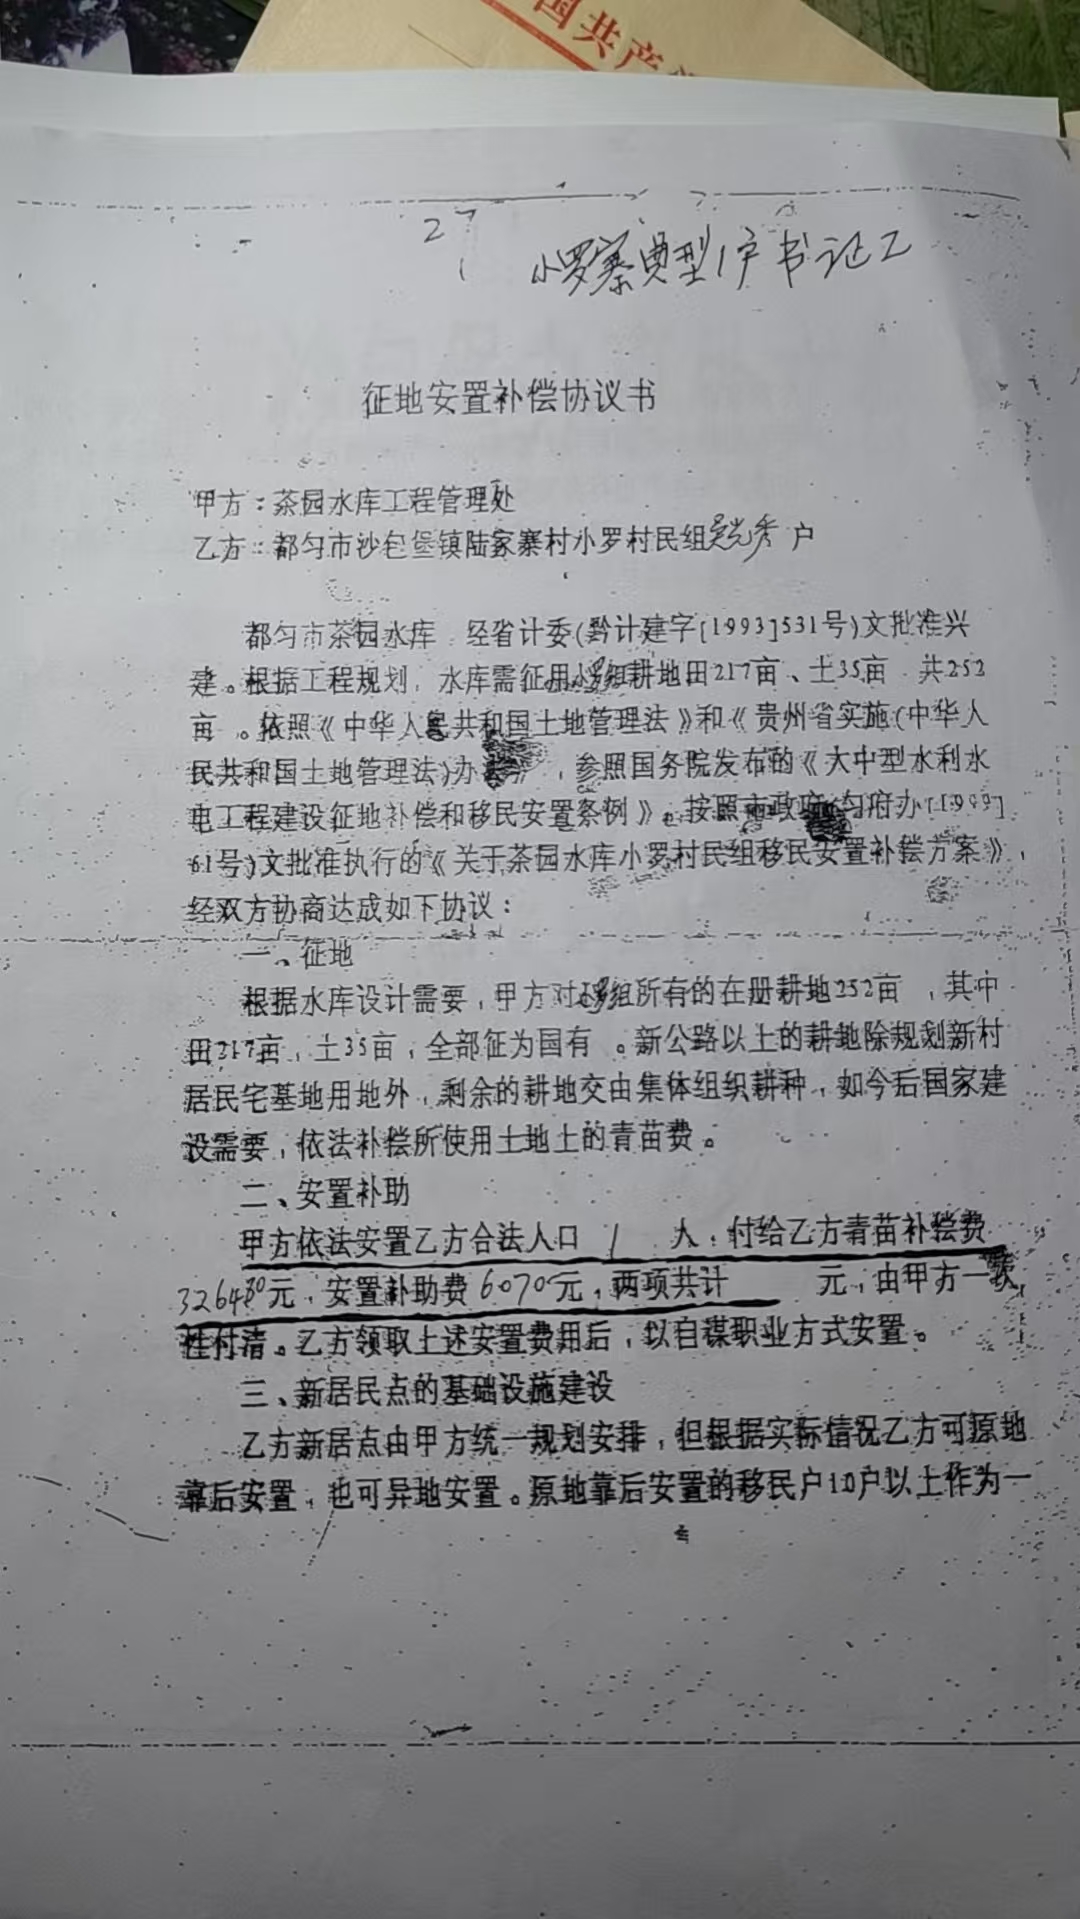 国共产
27
小罗寨典型1户书记乙
征地安置补偿协议书
甲方：茶园水库工程管理处
乙方：都匀市沙包堡镇陆家寨村小罗村民组 户
都匀市茶园水库 经省计委(黔计建字[1993]531号)文批准兴
建。根据工程规划，水库需征用小罗组耕地田217亩、土35亩 共252
亩 。依照《中华人民共和国土地管理法》和《贵州省实施(中华人
民共和国土地管理法)办法》，参照国务院发布的《大中型水利水
电工程建设征地补偿和移民安置条例》。按照市政府(匀府办[1999]
61号)文批准执行的《关于茶园水库小罗村民组移民安置补偿方案》，
经双方协商达成如下协议：
一、征地
根据水库设计需要，甲方对小罗组所有的在册耕地252亩 ，其中
田217亩，土35亩，全部征为国有 。新公路以上的耕地除规划新村
居民宅基地用地外，剩余的耕地交由集体组织耕种，如今后国家建
设需要，依法补偿所使用土地上的青苗费。
二、安置补助
甲方依法安置乙方合法人口 1 人，付给乙方青苗补偿费
元，安置补助费6070元，两项共计 元，由甲方一次
性付清。乙方领取上述安置费用后，以自谋职业方式安置。
三、新居民点的基础设施建设
乙方新居点由甲方统一规划安排，但根据实际情况乙方可原地
靠后安置，也可异地安置。原地靠后安置的移民户10户以上作为一